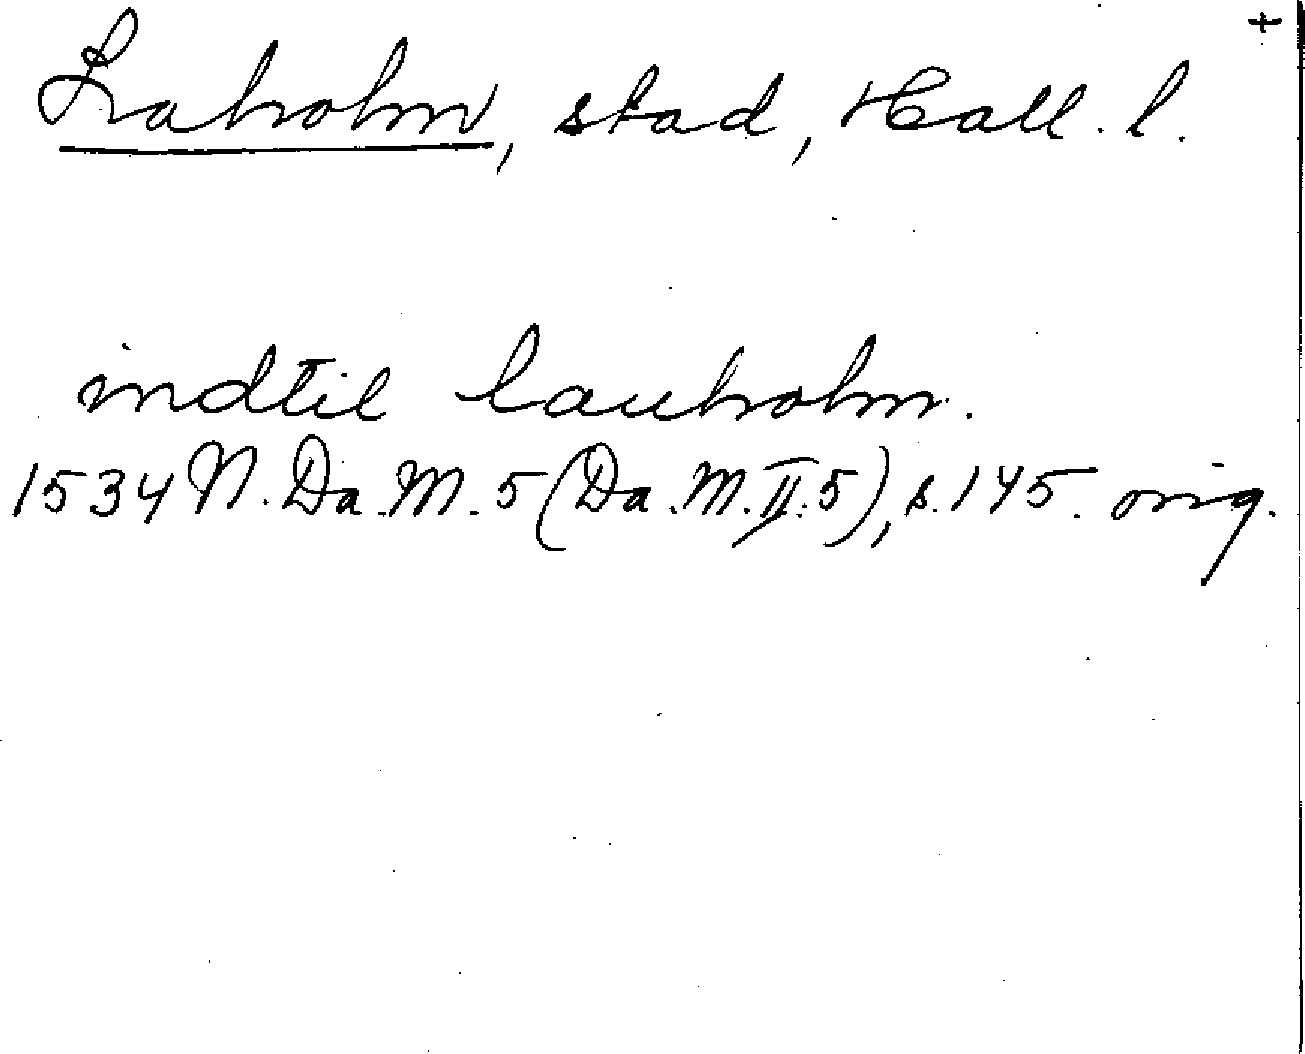 +
Laholm, stad, Hall. l.
indtil lauholm.
1534 N. Da. M. 5 (Da. M. II. 5), s. 145. orig.